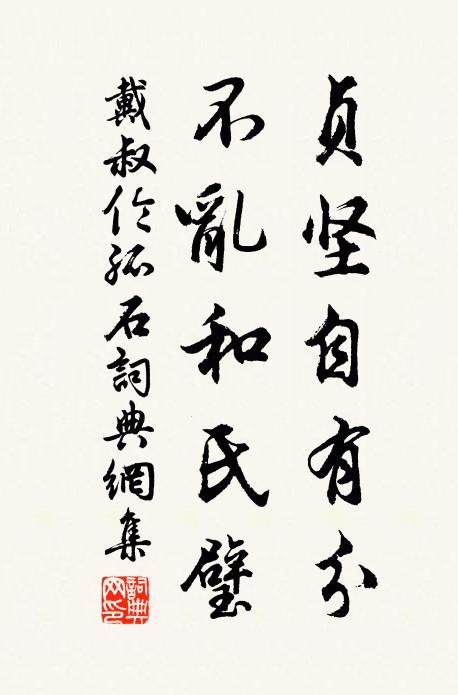 贞坚自有分
不亂和氏璧
戴叔伦孤石詞典網集
詞典网印